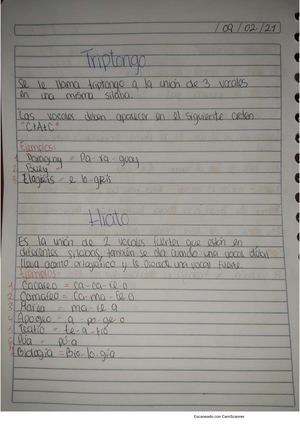 09/02/21
Triptongo
Se le llama triptongo a la unión de 3 vocales
en una misma silaba.
Las vocales deben aparecer en el siguiente orden
"C+A+C"
Ejemplos:
1 Paraguay = Pa-ra-guay
2 Buey
3 = e lo-geis
Hiato
Es la unión de 2 vocales fuertes que estén en
diferentes silabas, también se da cuando una vocal débil
lleva acento ortográfico y le una vocal fuerte.
Ejemplos:
1 Cacareo = ca-ca-re o
2 Camareo = Ca-ma-re o
3 Marea = ma-re a
4 Apogeo = a po-ge-o
5 Teatro = te-a-tro
6 Púa = pú-a
7 Biología = Bio-lo-gía
Escaneado con CamScanner